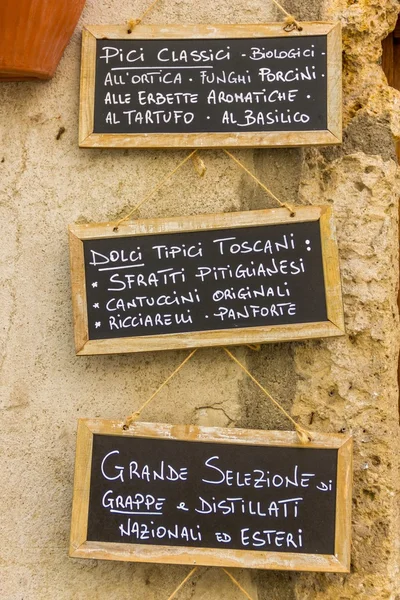 Pici Classici - Biologici -
all'ortica - funghi porcini -
alle erbette aromatiche -
al tartufo - al basilico
Dolci tipici toscani:
* Sfratti pitiglianesi
* Cantuccini originali
* Ricciarelli - panforte
Grande Selezione di
Grappe e distillati
nazionali ed esteri